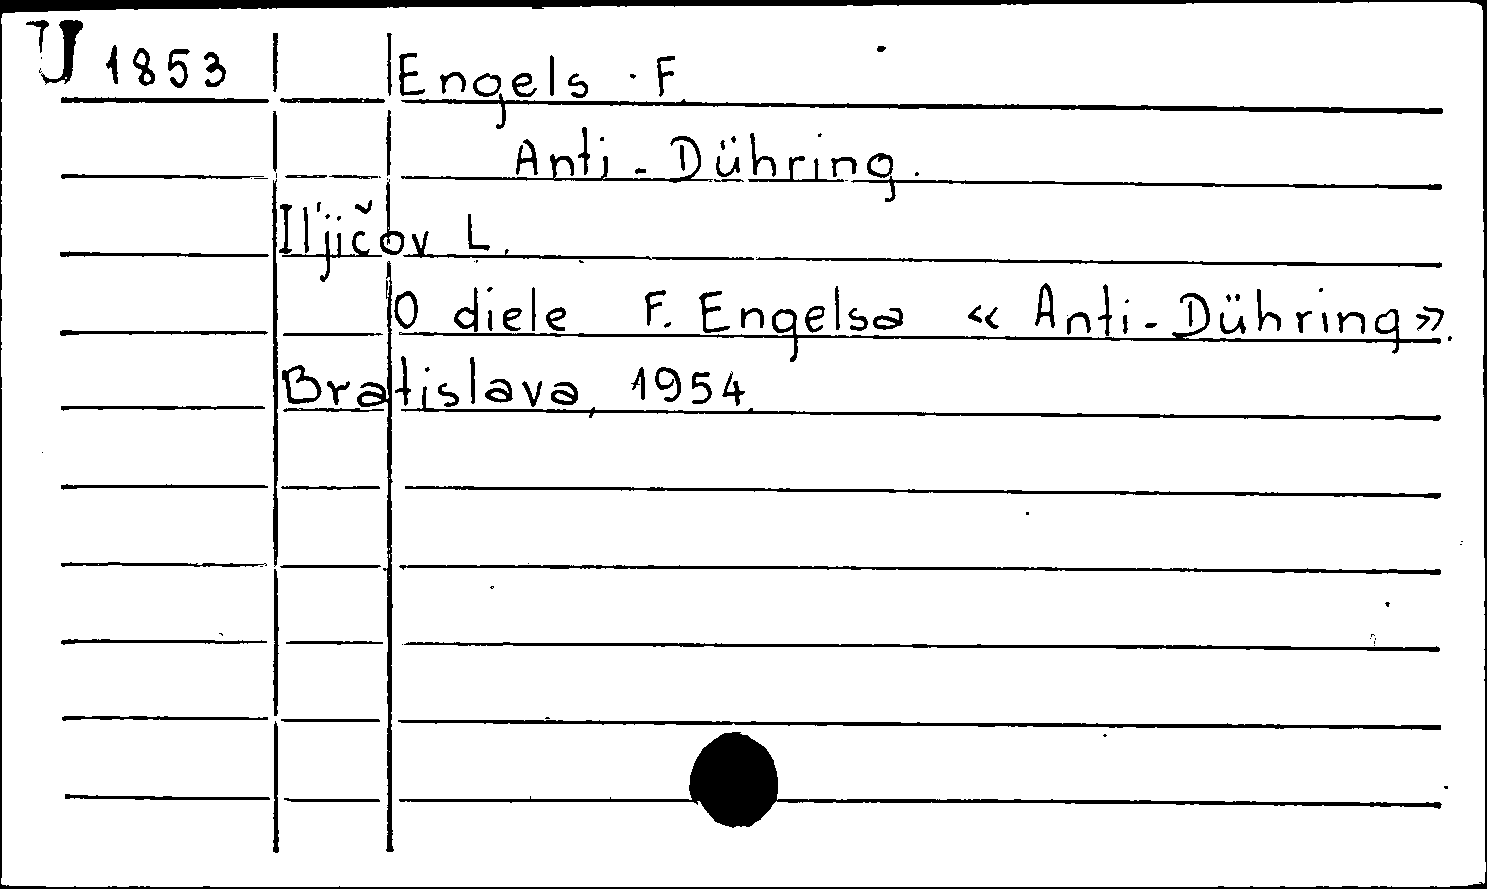 U 1853 Engels F.
Anti-Dühring.
Il'jičov L.
O diele F. Engelsa « Anti-Dühring».
Bratislava, 1954.